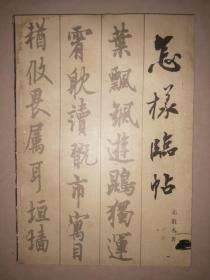 怎樣臨帖
葉飄颻遊鵾獨運
霄耽讀翫市寓目
輶攸畏属耳垣墻